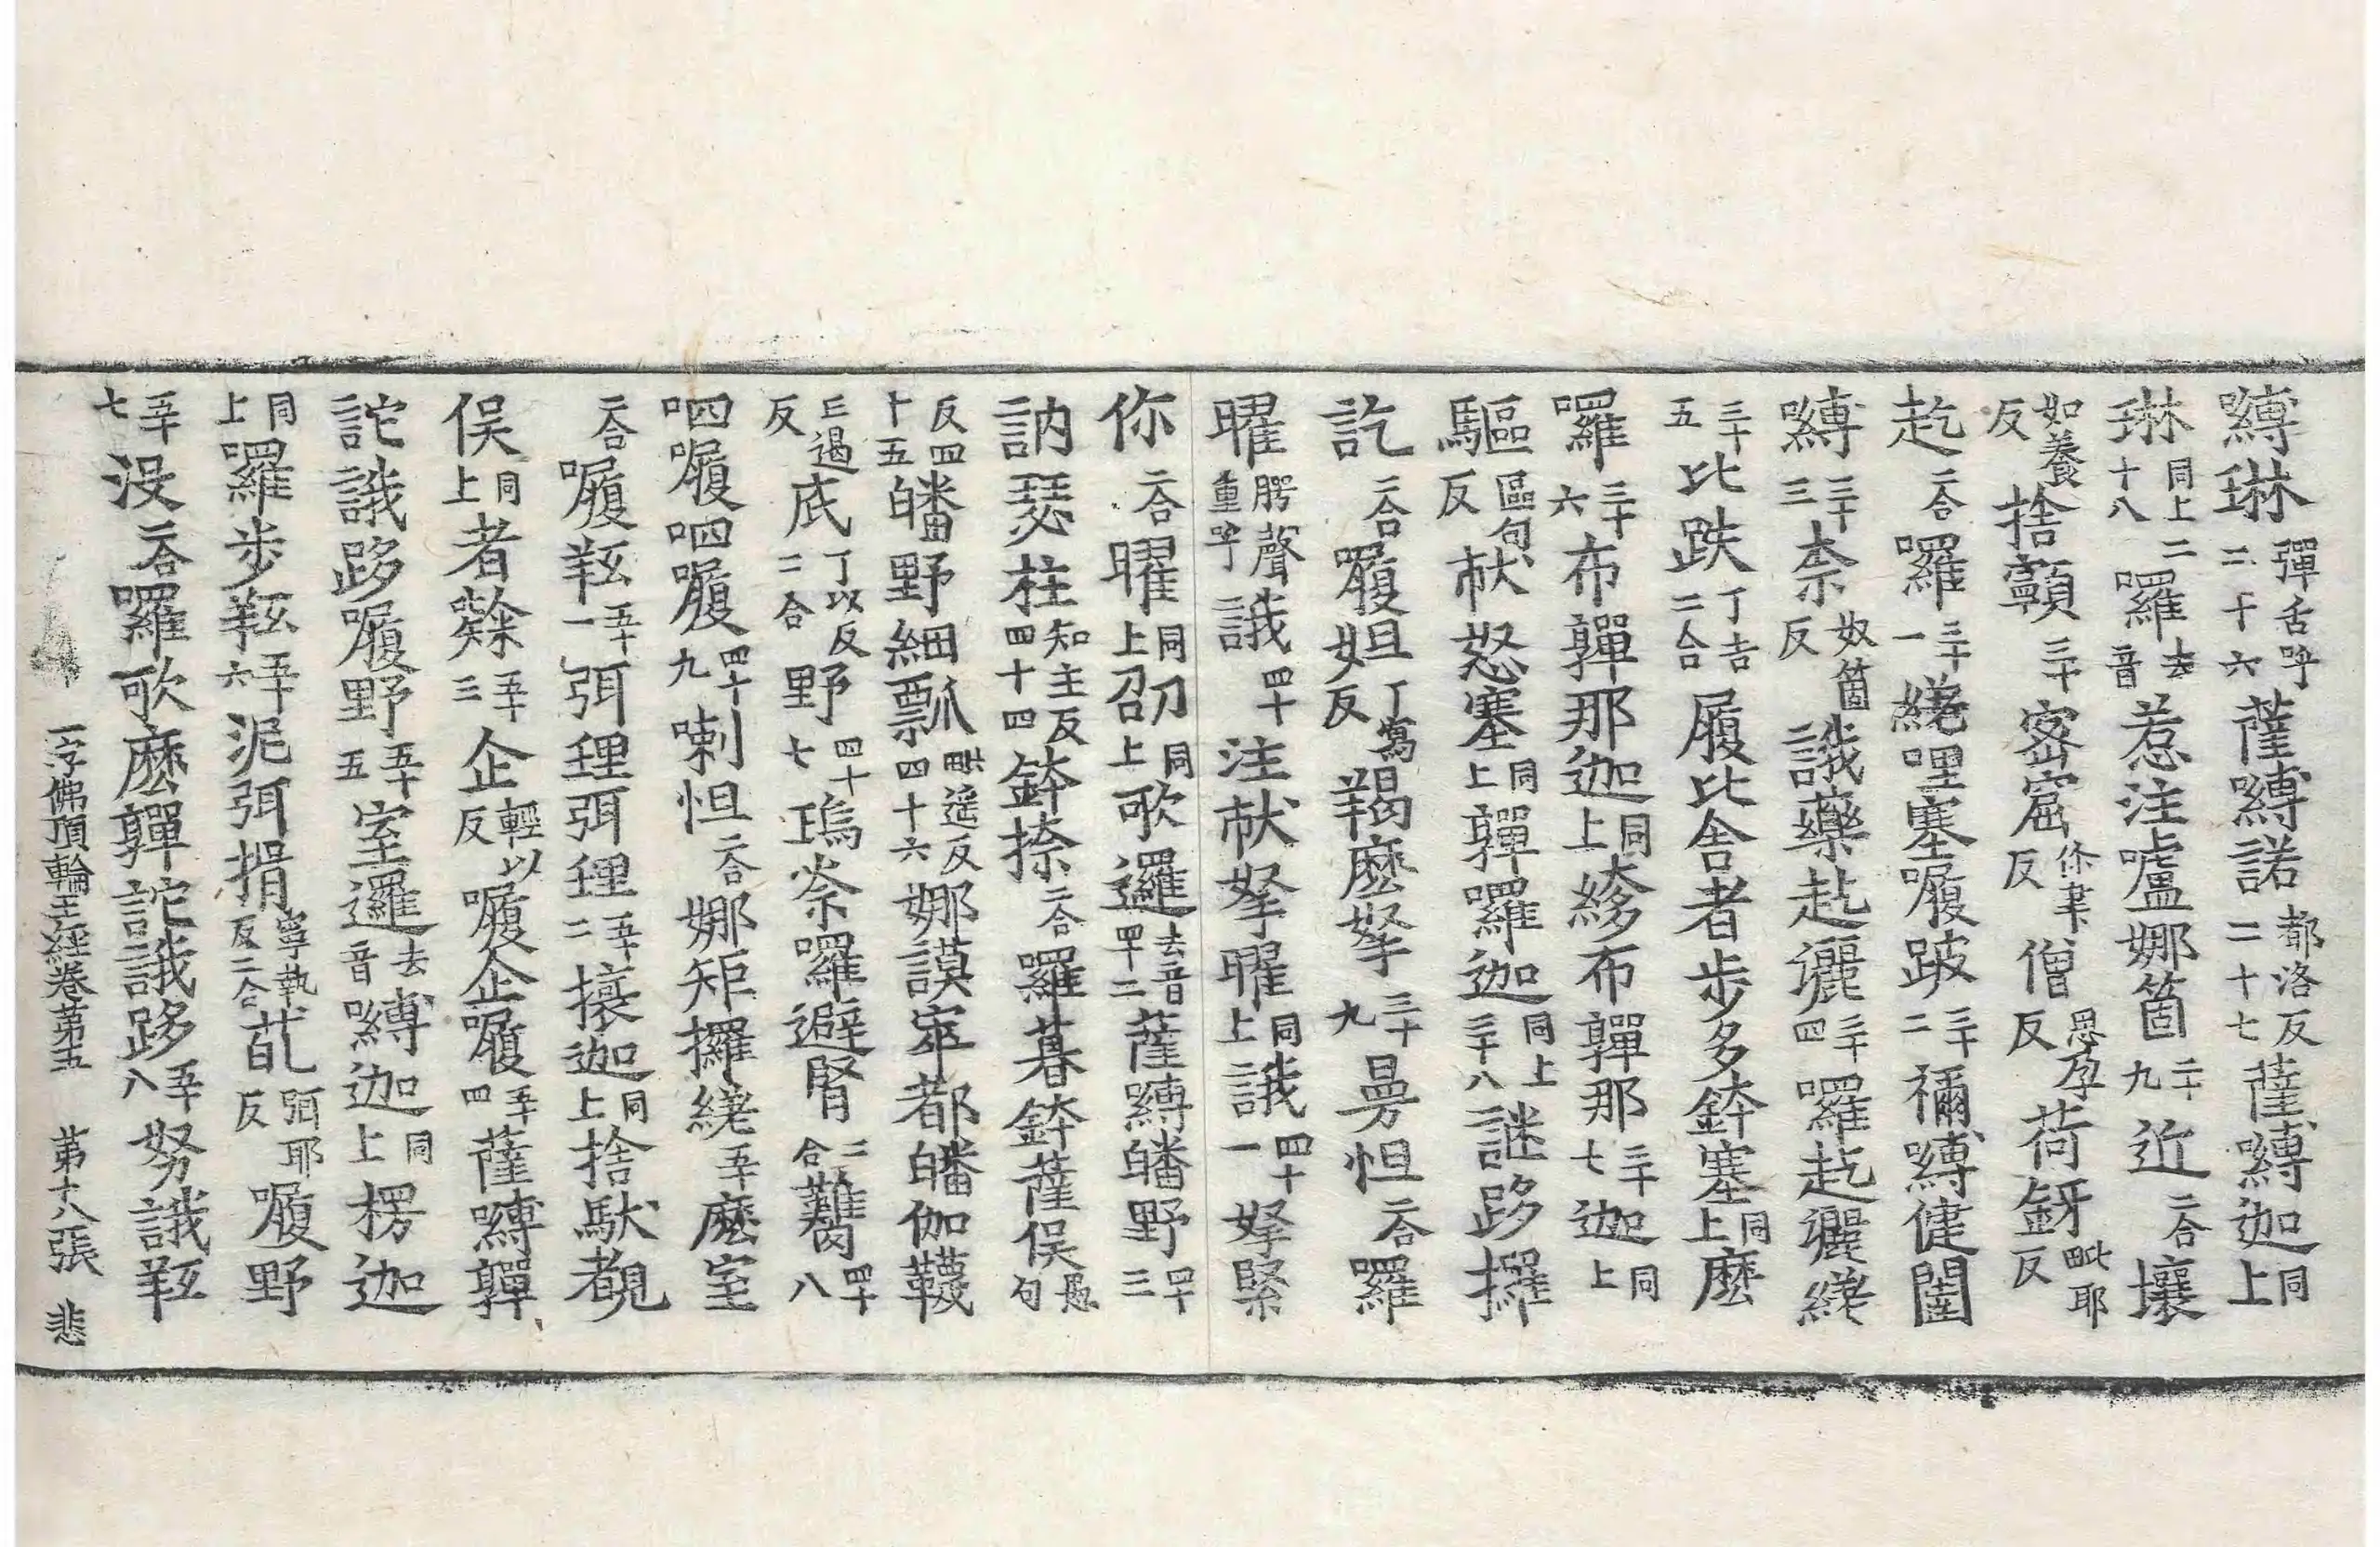 嚩琳彈舌呼二十六薩嚩諾都洛反二十七薩嚩迦同上
琳同上二十八囉去音惹注嚧娜箇二十九近二合壤
如養反捨顫三十窋僧思孕反荷釾毗耶反
趁二合囉三十一繞哩塞履跛三十二禰嚩健闥
嚩三十三柰奴箇反誐藥囉
三十五比跌丁吉二合履比舍者步多鉢塞同上麽
囉三十六布那迦同上布那三十七迦同上
驅區句反怒塞同上囉迦同上三十八謎跢攞
訖二合履妲丁寫反羯麽拏三十九曼怛二合囉
曜膀聲重呼誐四十注拏曜同上誐四十一拏緊
你二合曜同上召同上歌邏去音四十二薩嚩皤野四十三
訥瑟柱知主反四十四鉢捺二合囉暮鉢薩俁愚句
反四十五皤野細瓢毗遥反四十六娜謨窣都皤伽韈
亡遏反底丁以反二合野四十七塢柰囉避腎二合四十八
呬履呬履四十九喇怛二合娜矩攞繞五十麽室
二合履五十一弭理弭理五十二攘迦同上捨馱覩
俁同上者五十三企輕以反履企履五十四薩嚩
詑誐跢履野五十五室邏去音嚩迦同上楞迦
同上囉步五十六泥弭揖寧執反二合弭耶反履野
五十七没二合囉歌麽詑誐跢五十八努誐
一字佛頂輪王經卷第五　第十八張　悲